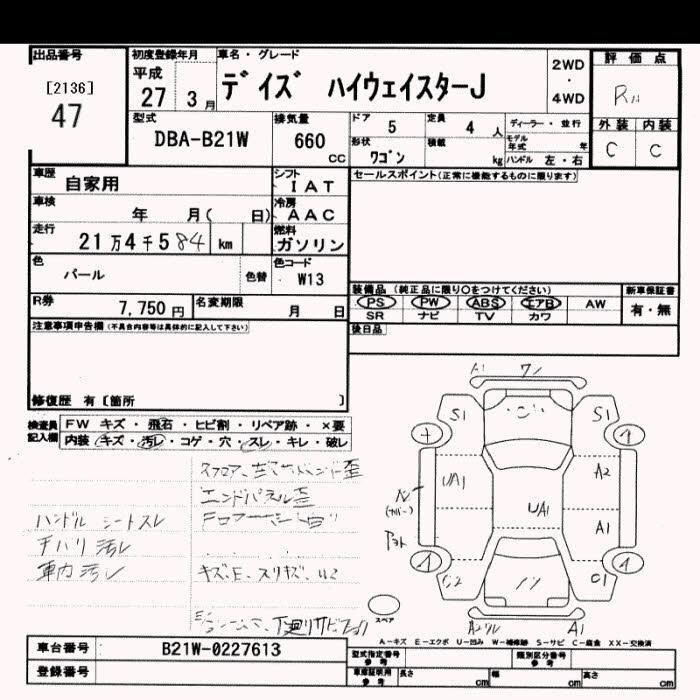 出品番号
[2136]
47
初度登録年月
平成
27 3月
車名・グレード
デイズ ハイウェイスターJ
2WD
・
4WD
評価点
R
外装 内装
C C
型式
DBA-B21W
排気量
660
cc
ドア 5
定員 4 人
ディーラー・並行
形状 ワゴン
積載 kg
モデル年式 年
ハンドル 左・右
車歴 自家用
シフト IAT
車検 年 月( 日)
冷房 AAC
走行 21万4千584 km
燃料 ガソリン
色 パール 色替
色コード W13
R券 7,750円
名変期限 月 日
セールスポイント(正常に機能するものに限ります)
装備品 (純正品に限り○をつけてください)
新車保証書
PS PW ABS エアB AW
有・無
SR ナビ TV カワ
後日品
注意事項申告欄(不具合内容等は具体的に記入して下さい)
修復歴 有〔箇所 〕
検査員記入欄
FW キズ・飛石・ヒビ割・リペア跡・×要
内装 キズ・汚レ・コゲ・穴・スレ・キレ・破レ
エンドパネル歪
ハンドル シートスレ
チハリ 汚レ
車内汚レ
キズ、E、スリキズ、U2
下廻りサビ
A1 ワレ
S1 S1
UA1 A2
UA1
A1
C2 C1
A2 ワレ A1
スペア
A-キズ E-エクボ U-凹み W-補修跡 S-サビ C-腐食 XX-交換済
車台番号 B21W-0227613
登録番号
型式指定番号 参考
類別区分番号 参考
車庫証明用 参考
長さ cm
幅 cm
高さ cm